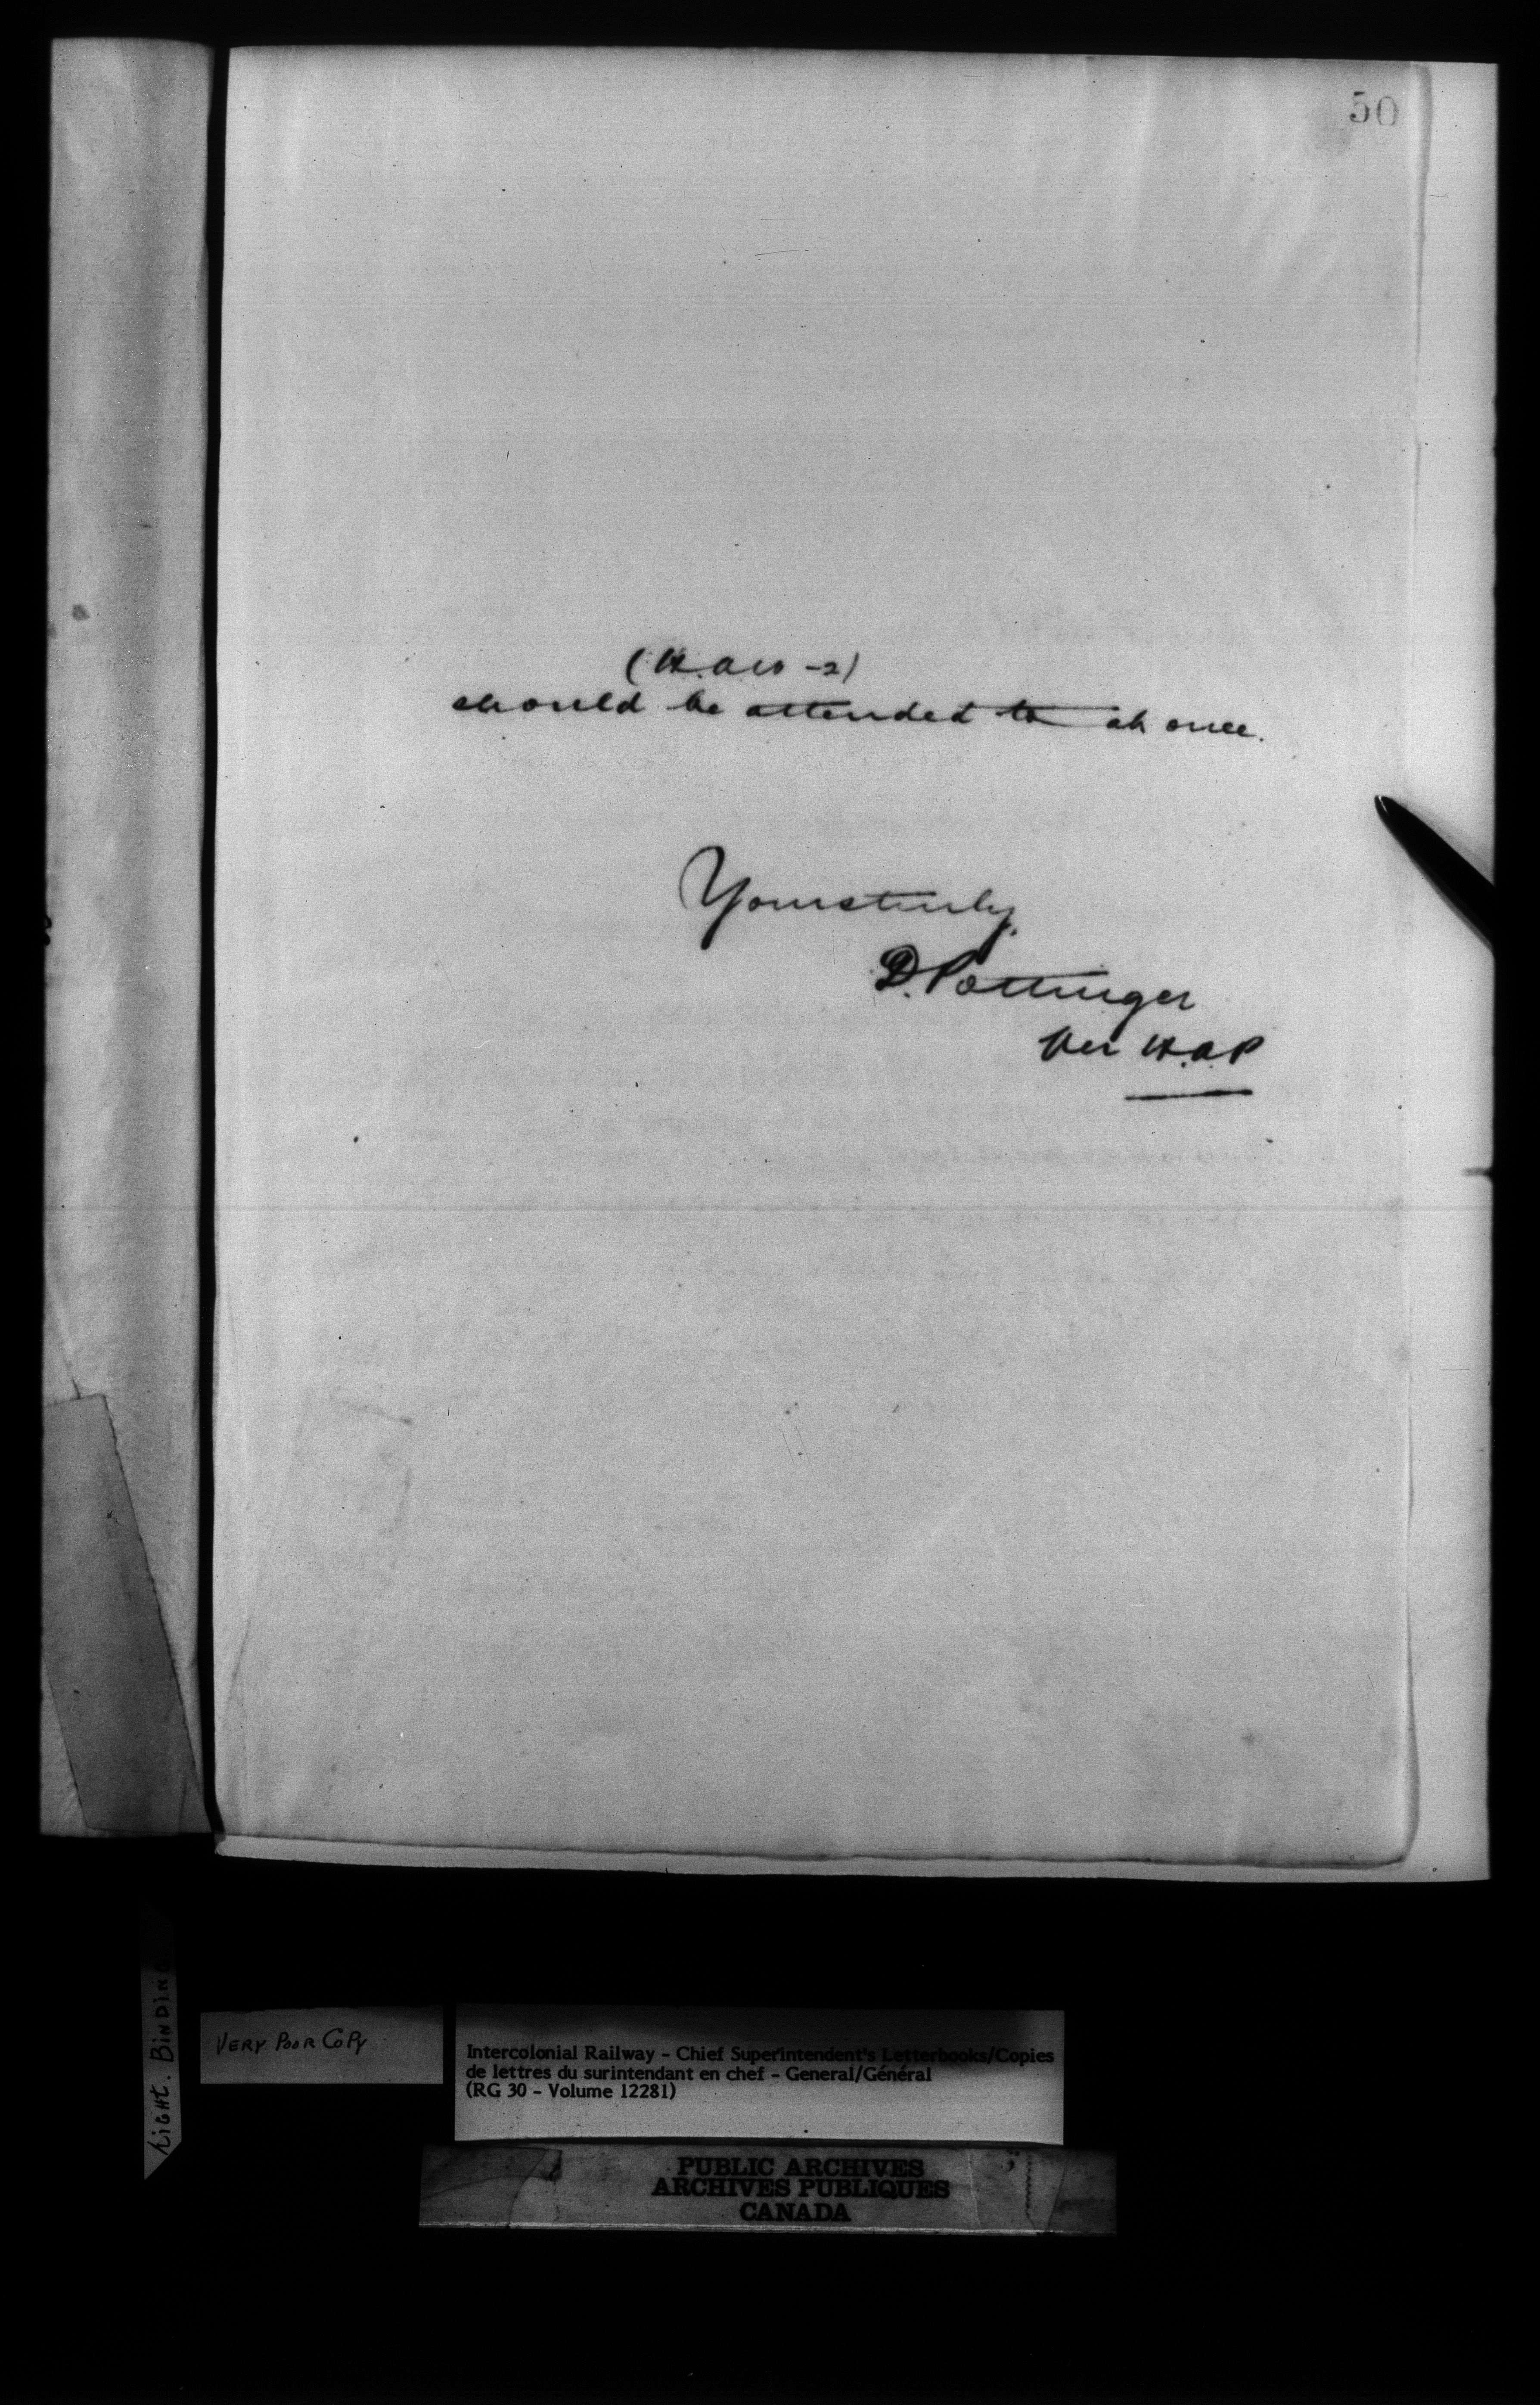 50
(H.A.W -2)
should be attended to at once.
Yours truly,
D. Pottinger
Per H.A.P
LIGHT. BINDING
VERY POOR COPY
Intercolonial Railway - Chief Superintendent's Letterbooks/Copies
de lettres du surintendant en chef - General/Général
(RG 30 - Volume 12281)
PUBLIC ARCHIVES
ARCHIVES PUBLIQUES
CANADA